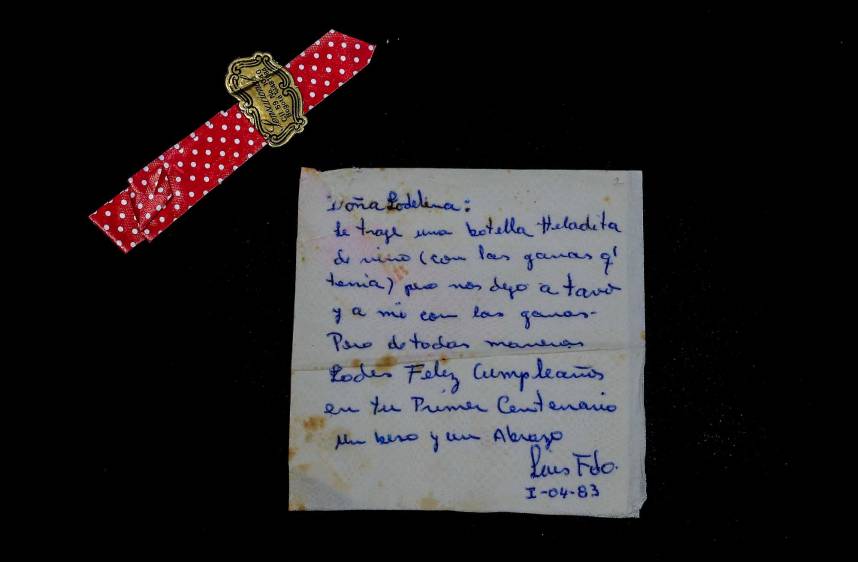 Doña Lodelina:
Le traje una botella Heladita
de vino (con las ganas q'
tenia) pero nos dejo a Tavo
y a mi con las ganas-
Pero de todas maneras
Lodes Feliz Cumpleaños
en tu Primer Centenario
Un beso y un Abrazo
Luis Fdo.
I-04-83